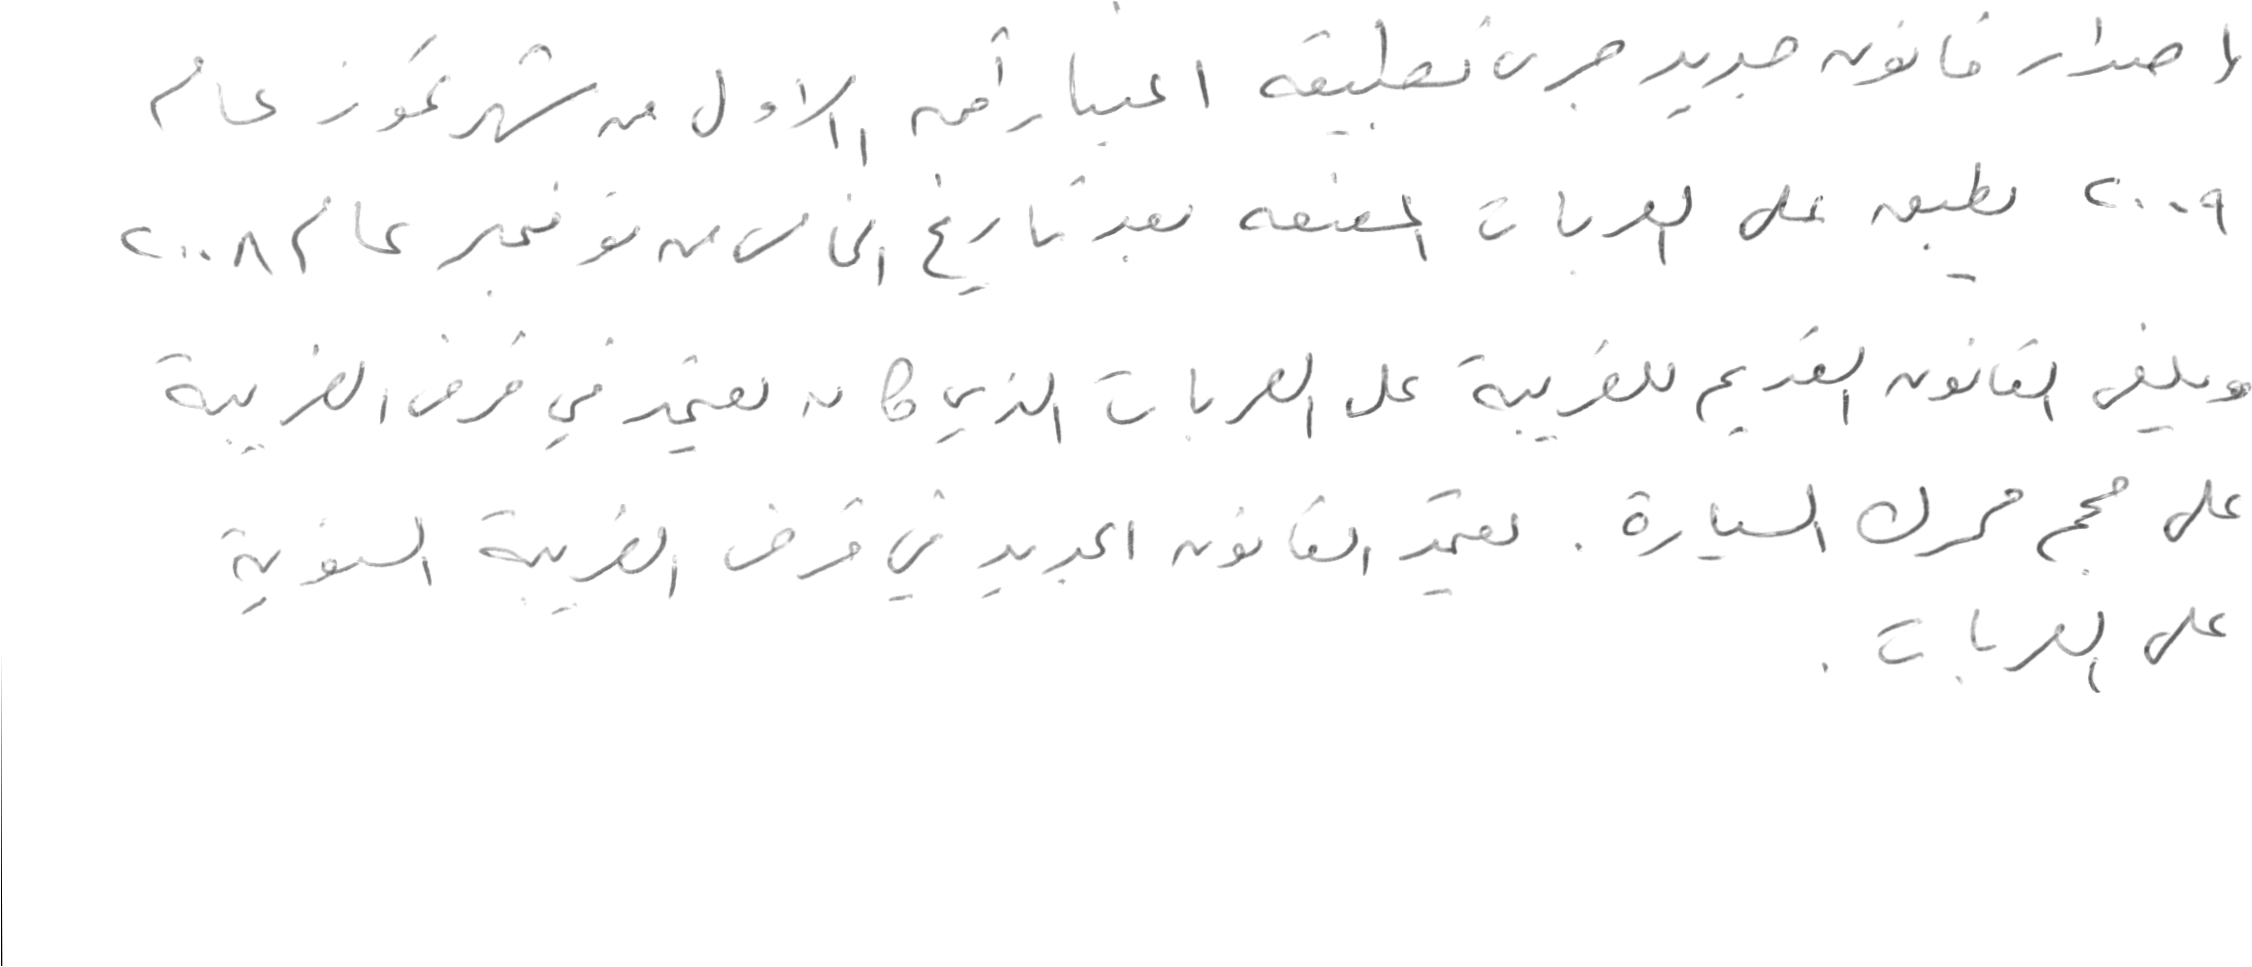 لاصدار قانون جديد جرى تطبيقه اعتباراً من الاول من شهر تموز عام
٢٠٠٩ يطبق على العربات المصنفه بعد تاريخ الخامس من نوفمبر عام ٢٠٠٨
ويلغي القانون القديم للضريبة على العربات الذي كان يعتمد في فرض الضريبة
على حجم محرك السيارة . يعتمد القانون الجديد في فرض الضريبة السنوية
على العربات .